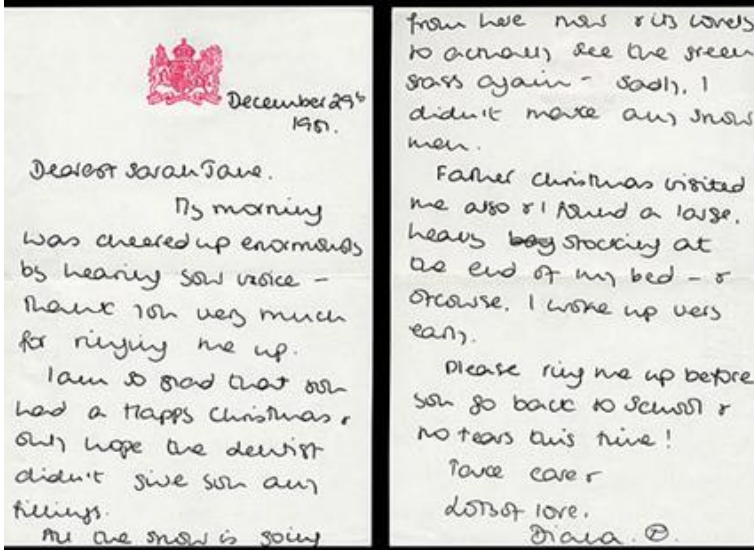 December 29th
1981.
Dearest Sarah Jane.
My morning
was cheered up enormously
by hearing your voice -
thank you very much
for ringing me up.
I am so glad that you
had a Happy Christmas &
only hope the dentist
didn't give you any
fillings.
All the snow is going
from here now & its lovely
to actually see the green
grass again - sadly, I
didn't make any snow
men.
Father Christmas visited
me also & I found a large,
heavy bag stocking at
the end of my bed - &
ofcourse, I woke up very
early.
Please ring me up before
you go back to school &
no tears this time!
Take care &
Lots of love,
Diana.